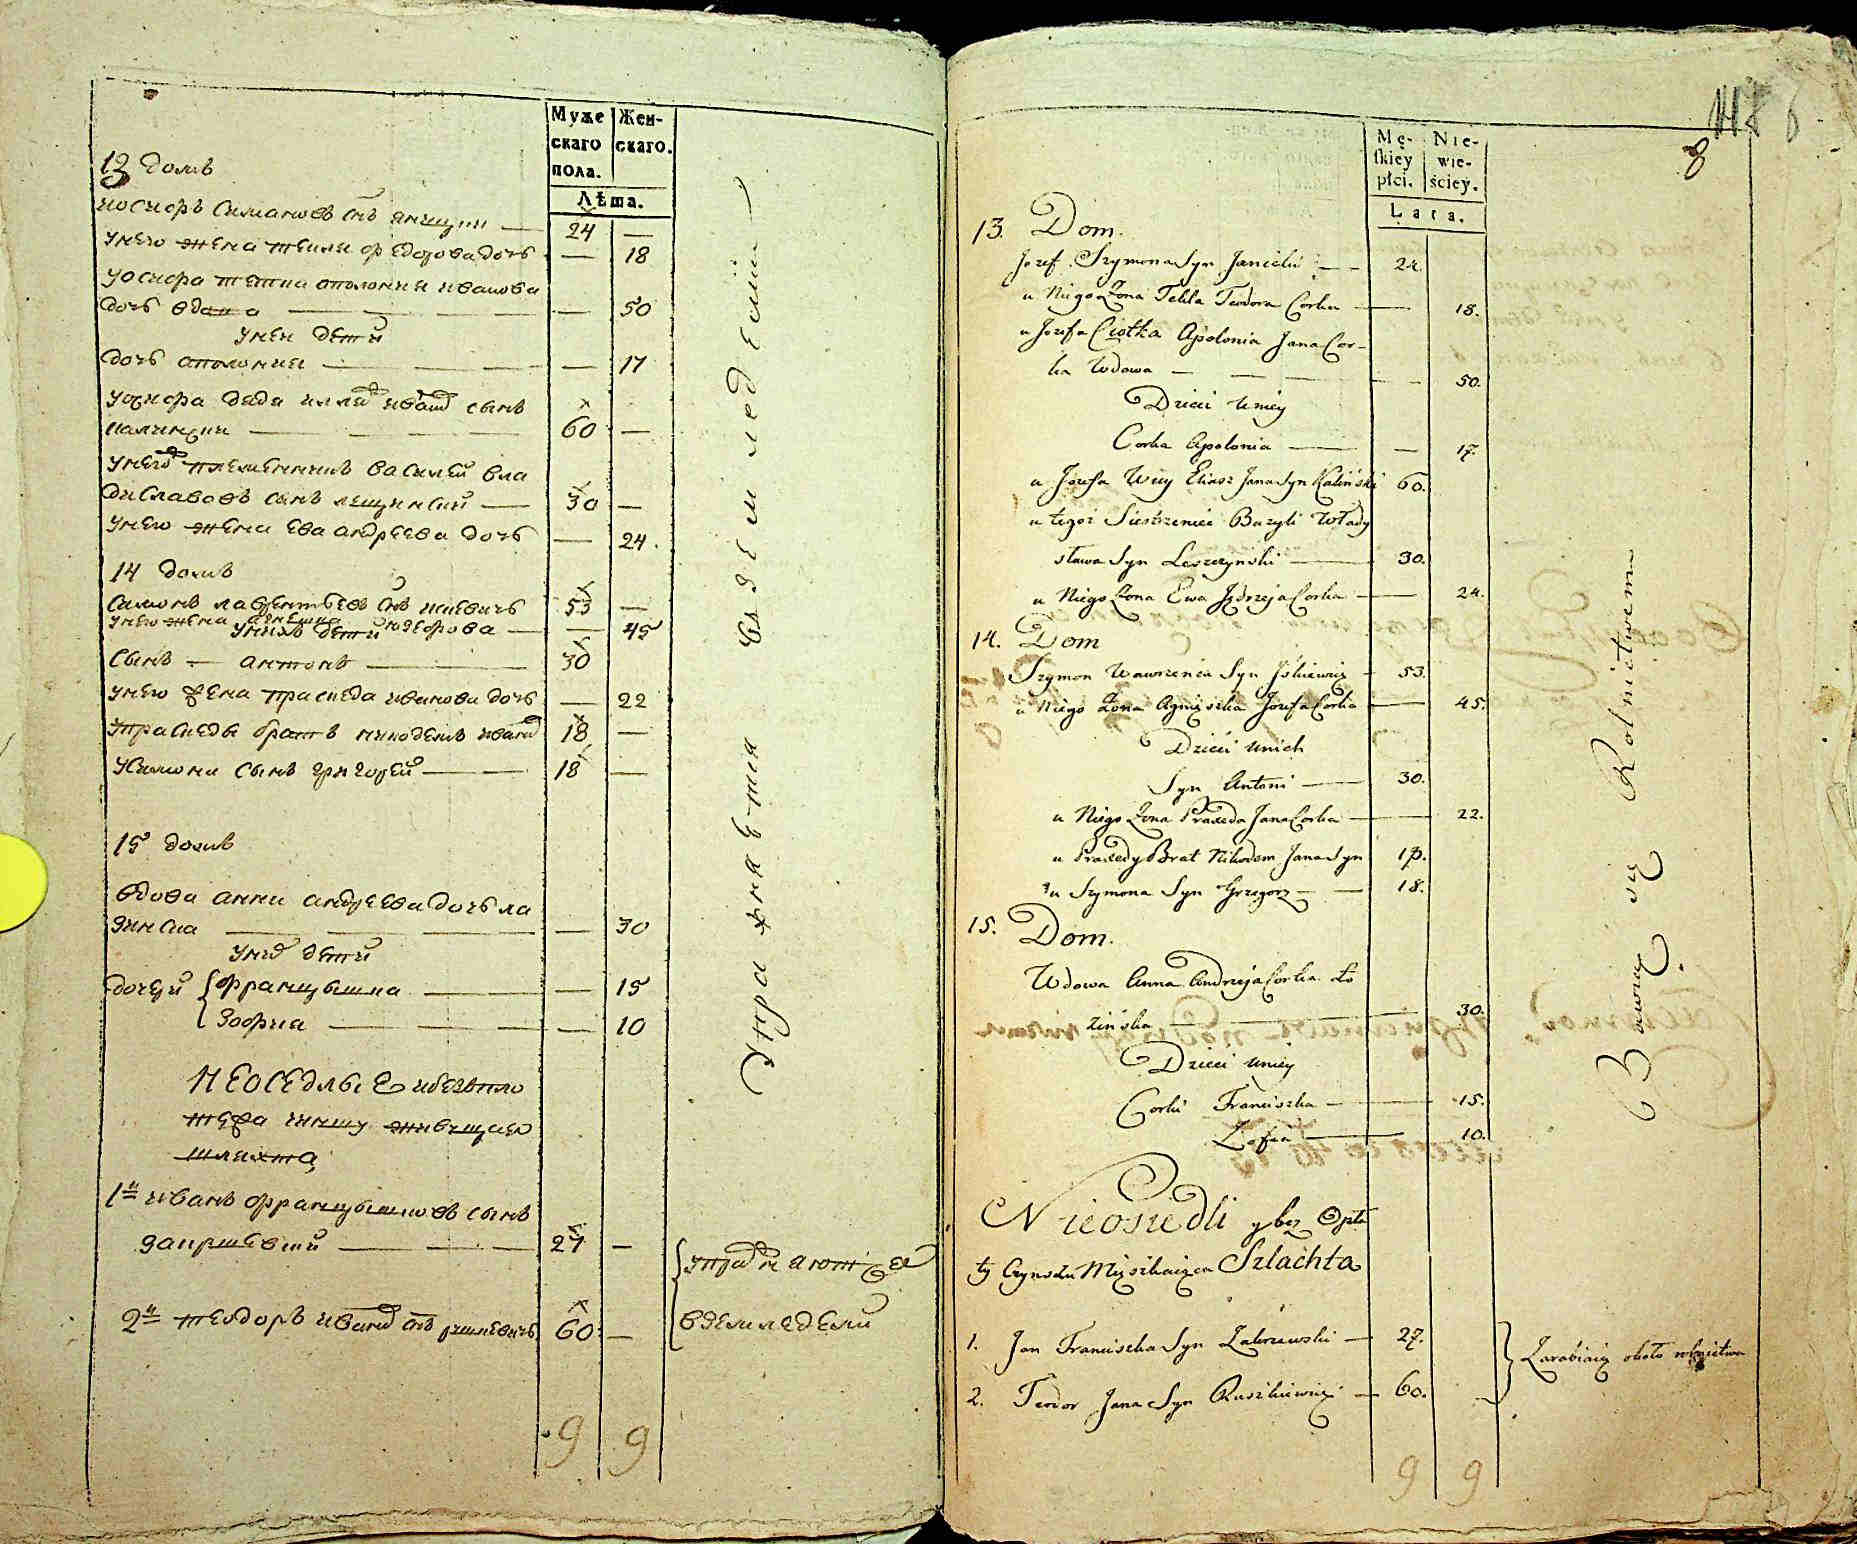 Муже
скаго
пола.
Жен-
скаго.
Лѣта.
13 домъ
иосифъ симановъ снъ яницки — 24 —
унего жена текли федорова дочь — 18
уосифа тетка аполония иванова
дочь вдова — 50
унеи дети
дочь аполония — 17
уосифа дядя илляш иванов сынъ
калински — 60 —
унего племенникъ василей вла
диславовъ сынъ лещинский — 30 —
унего жена ева андреева дочь — 24
14 домъ
симонъ лаврентьевъ снъ юшкевичъ 53 —
унего жена агнешка юзефова — 45
унихъ дети
сынъ — антонъ — 30
унего жена праседа иванова дочь — 22
упраседы братъ никодемъ иванов 18 —
усимона сынъ григорей — 18 —
15 домъ
вдова анна андреева дочь ла
зинска — 30
унеи дети
дочери францышка — 15
зофия — 10
Неоседлые ибезъпло
тежа чиншу живущая
шляхта
1й иванъ францышковъ сынъ
закржевский — 27 —
2й теодоръ иванов снъ рушкевичъ 60 —
упражняются
вземледелии
Упражняется вземледелии
9 9
8
Mę-
skiey
płci.
Nie-
wie-
ściey.
Lata.
13. Dom.
Jozef Szymona Syn Janicki — 24.
u Niego Żona Tekla Teodora Corka — 18.
u Jozefa Ciotka Apolonia Jana Cor-
ka Wdowa — 50.
Dzieci uniey
Corka Apolonia — 17.
u Jozefa Wuy Eliasz Jana Syn Kaliński 60.
u tegoż Siestrzeniec Bazyli Włady
sława Syn Leszczynski — 30.
u Niego Żona Ewa Jędrzeja Corka — 24.
14. Dom
Szymon Wawrzenca Syn Jśkiewicz — 53.
u Niego Żona Agnieszka Jozefa Corka — 45.
Dzieci unich
Syn Antoni — 30.
u Niego Żona Praxeda Jana Corka — 22.
u Praxedy Brat Nikodem Jana Syn 18.
u Szymona Syn Grzegorz — 18.
15. Dom.
Wdowa Anna Andrzeja Corka Ło
zińska — 30.
Dzieci uniey
Corki Franciszka — 15.
Zofia — 10.
Nieosiedli y bez Opła
ty Czynszu Mięszkaiąca Szlachta
1. Jan Franciszka Syn Zakrzewski — 27.
2. Teodor Jana Syn Ruszkiewicz — 60.
Zarabiaią około rolnictwa
Bawią się Rolnictwem
9 9